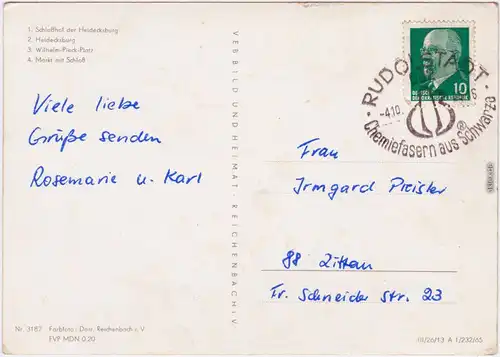 1. Schloßhof der Heidecksburg
2. Heidecksburg
3. Wilhelm-Pieck-Platz
4. Markt mit Schloß
Viele liebe
Grüße senden
Rosemarie u. Karl
VEB BILD UND HEIMAT · REICHENBACH i V
10
RUDOLSTADT
-4.10.
Chemiefasern aus Schwarza
Frau
Irmgard Preisler
88 Zittau
Fr. Schneider Str. 23
Nr. 3187 Farbfoto: Darr, Reichenbach i. V.
EVP MDN 0,20
III/26/13 A 1/232/65